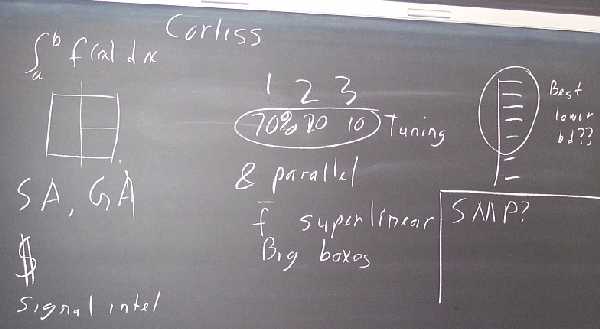 Corliss
∫ₐᵇ f(x) dx
1 2 3
70% 20 10 Tuning
Best
lower
bd??
& parallel
SA, GA
f superlinear
Big boxes
SMP?
$
signal intel